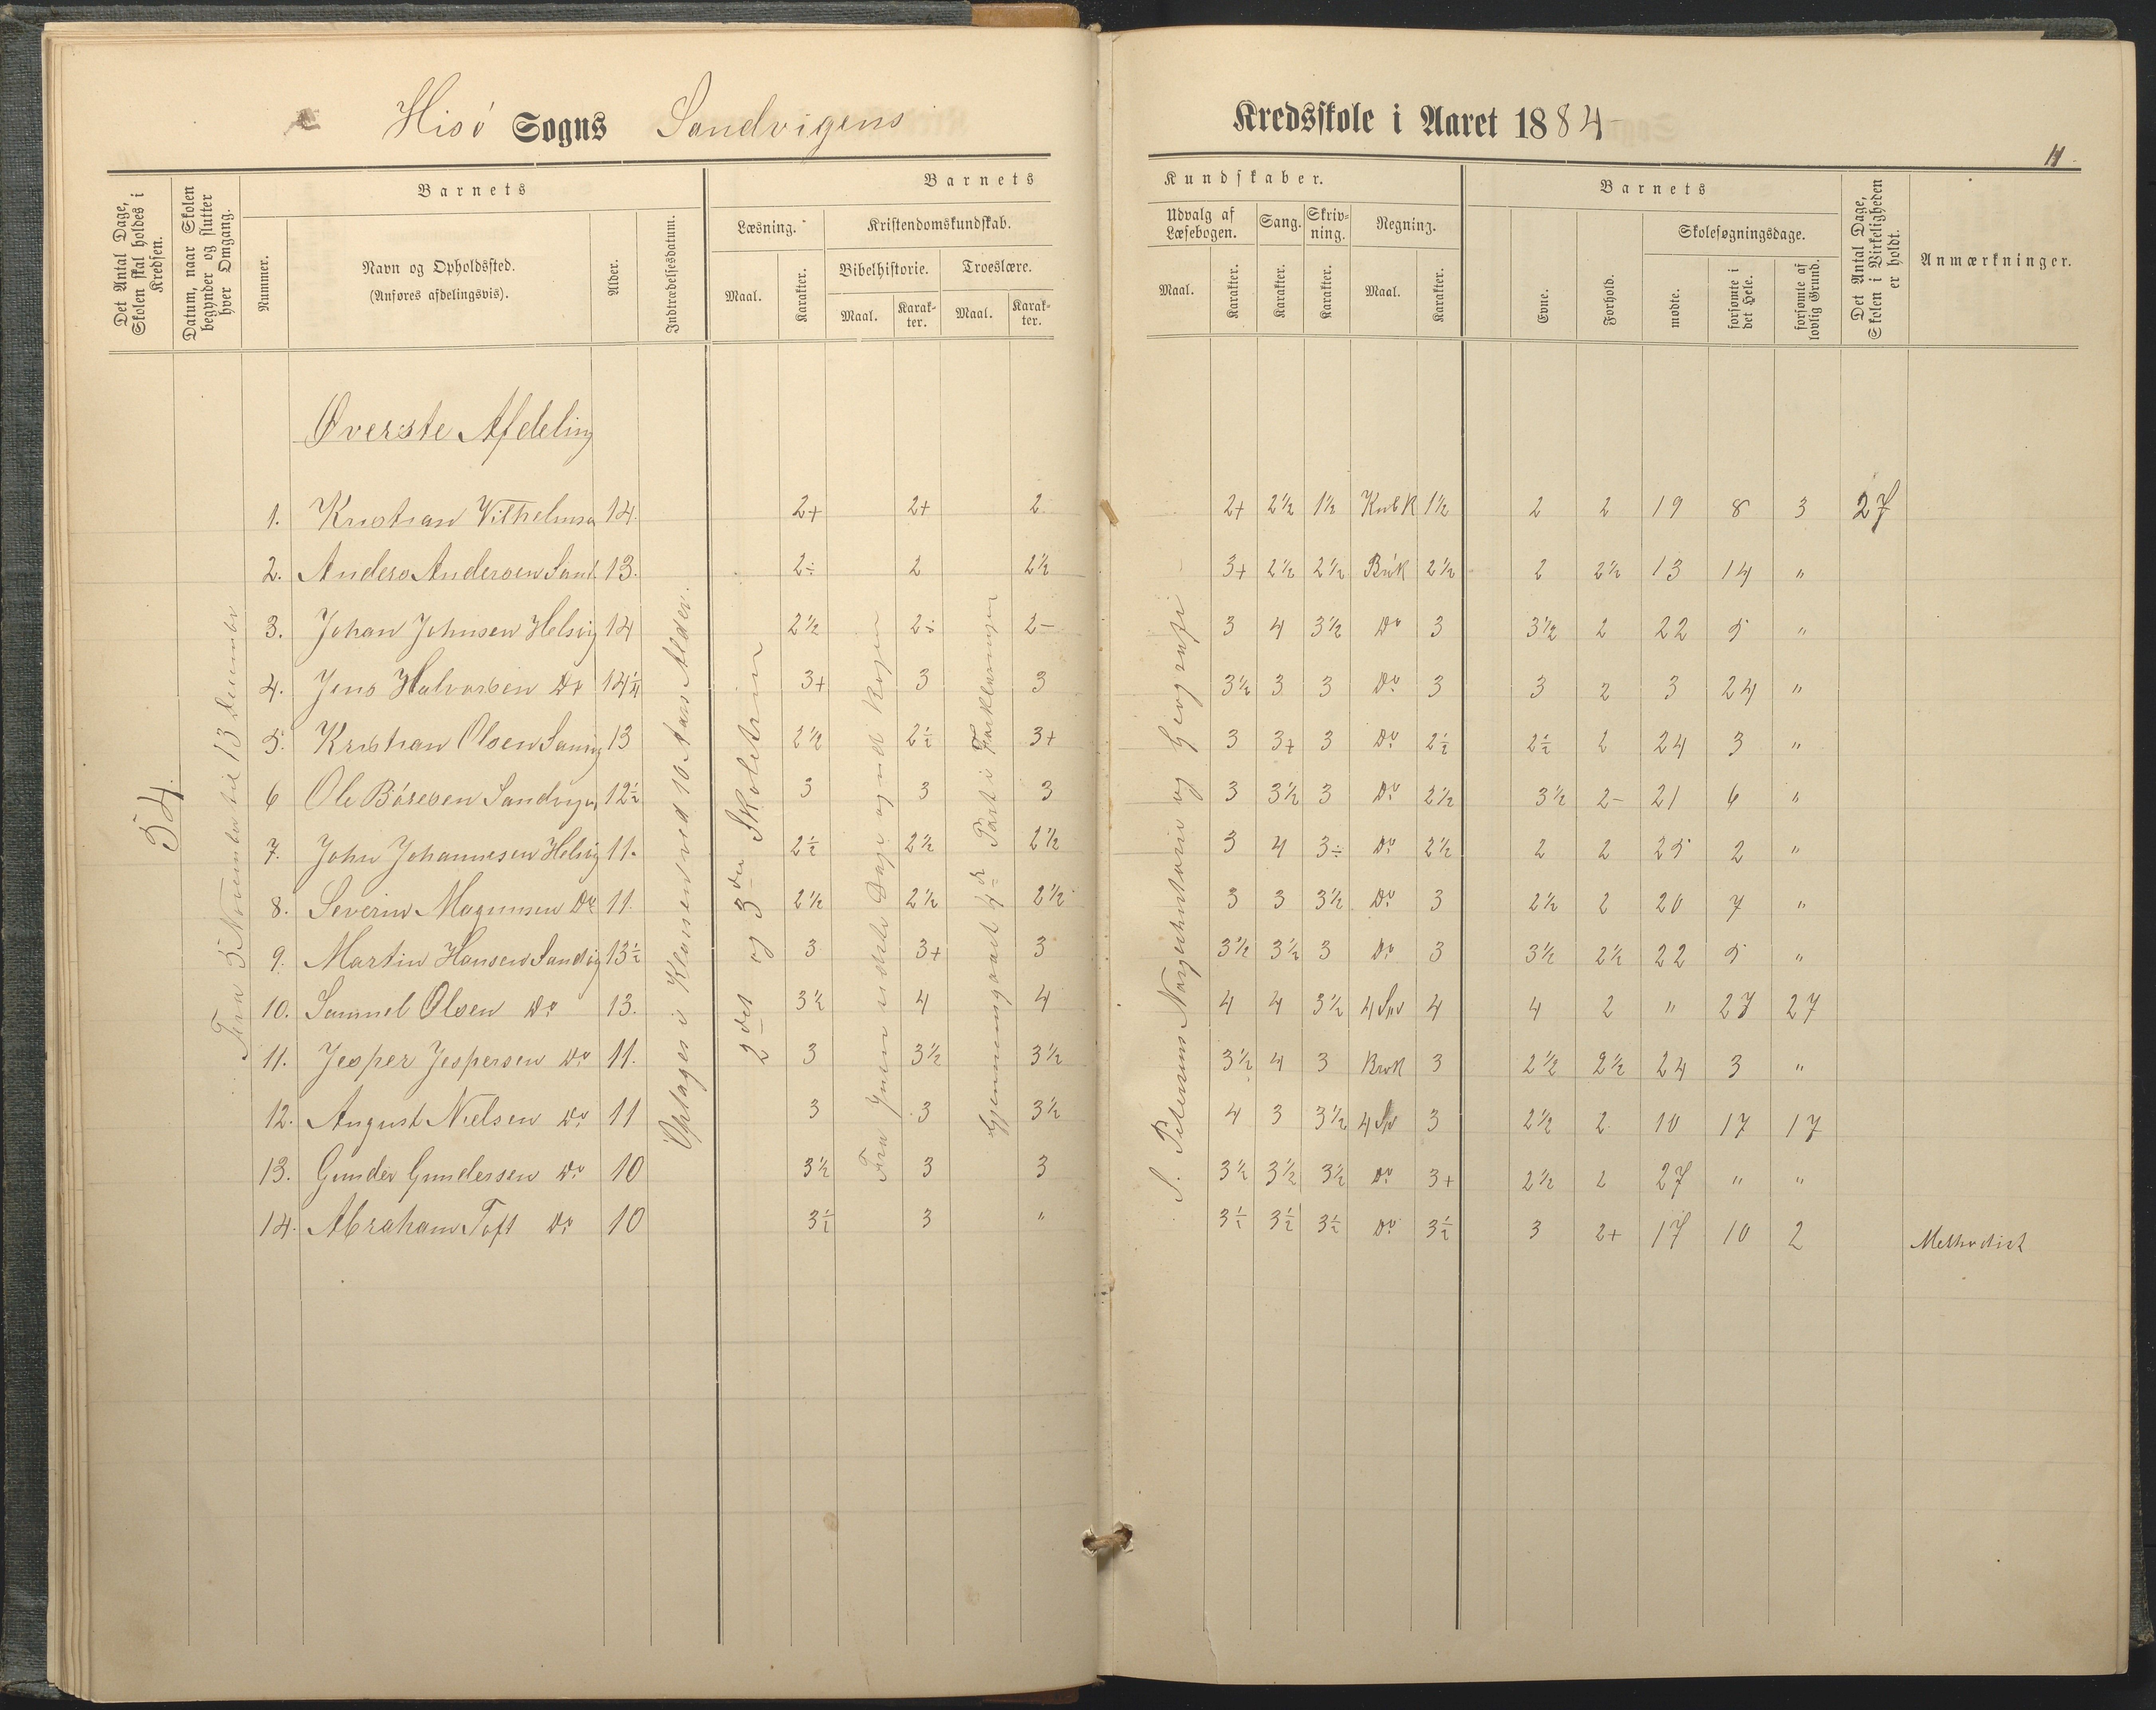 Hisö Sogns Sandvigens
Kredsskole i Aaret 1884
11.
Det Antal Dage, Skolen skal holdes i Kredsen.
Datum, naar Skolen begynder og slutter hver Omgang.
Barnets
Nummer.
Navn og Opholdssted.
(Anføres afdelingsvis).
Alder.
Indtrædelsesdatum.
Barnets
Læsning.
Maal.
Karakter.
Kristendomskundskab.
Bibelhistorie.
Maal.
Karakter.
Troeslære.
Maal.
Karakter.
Kundskaber.
Udvalg af Læsebogen.
Maal.
Karakter.
Sang.
Karakter.
Skrivning.
Karakter.
Regning.
Maal.
Karakter.
Barnets
Evne.
Forhold.
Skolesøgningsdage.
mødte.
forsømte i det Hele.
forsømte af lovlig Grund.
Det Antal Dage, Skolen i Virkeligheden er holdt.
Anmærkninger.
54.
Fra 5 November til 13 December
Optages i Klassen ved 10 Aars Alder.
2det og 3die Skoletrin
Gjennemgaaet 4de Part i Forklaringen
S. Petersens Norgeshistorie og Geografi
Øverste Afdeling
1. Kristian Vilhelmsen 14. 2+ 2+ 2 2+ 2½ 1½ 1½ 2 2 19 8 3 27
2. Anders Andersen Sand. 13. 2÷ 2 2½ 3+ 2½ 2½ Brøk 2½ 2 2½ 13 14 "
3. Johan Johnsen Helsvig 14 2½ 2÷ 2- 3 4 3½ Do 3 3½ 2 22 5 "
4. Jens Halvorsen Do 14¼ 3+ 3 3 3½ 3 3 Do 3 3 2 3 24 "
5. Kristian Olsen Sandvig 13 2½ 2½ 3+ 3 3+ 3 Do 2½ 2½ 2 24 3 "
6 Ole Böresen Sandvigen 12½ 3 3 3 3 3½ 3 Do 2½ 3½ 2- 21 6 "
7. John Johannesen Helsvig 11. 2½ 2½ 2½ 3 4 3÷ Do 2½ 2 2 25 2 "
8. Severin Magnusen Do 11. 2½ 2½ 2½ 3 3 3½ Do 3 2½ 2 20 7 "
9. Martin Hansen Sandvig 13½ 3 3+ 3 3½ 3½ 3 Do 3 3½ 2½ 22 5 "
10. Samuel Olsen Do 13. 3½ 4 4 4 4 3½ 4 4 2 " 27 27
11. Jesper Jespersen Do 11. 3 3½ 3½ 3½ 4 3 Brøk 3 2½ 2½ 24 3 "
12. August Nielsen Do 11 3 3 3½ 4 3 3½ 3 2½ 2 10 17 17
13. Gunder Gundersen Do 10 3½ 3 3 3½ 3½ 3½ Do 3+ 2½ 2 27 " "
14. Abraham Toft Do 10 3½ 3 " 3½ 3½ 3½ Do 3½ 3 2+ 17 10 2 Methodist